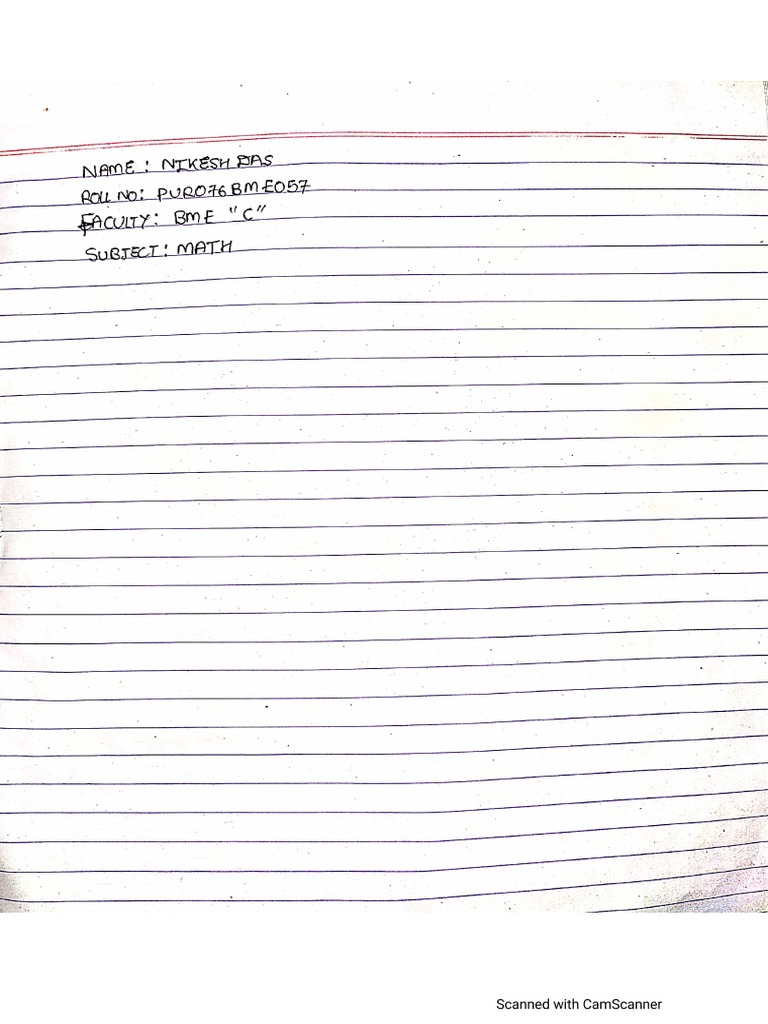 NAME : NIKESH DAS
ROLL NO: PUR076BME057
FACULTY: BME "C"
SUBJECT: MATH
Scanned with CamScanner